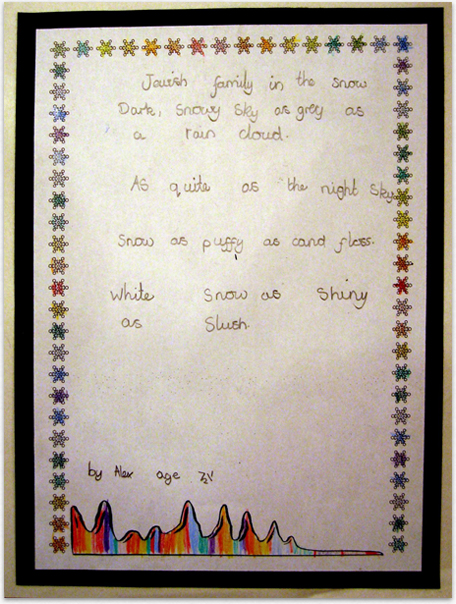 Jewish family in the snow
Dark, Snowy Sky as grey as
a rain cloud.
As quite as the night Sky
Snow as puffy as cand floss.
White Snow as Shiny
as Slush.
by Alex age 7½